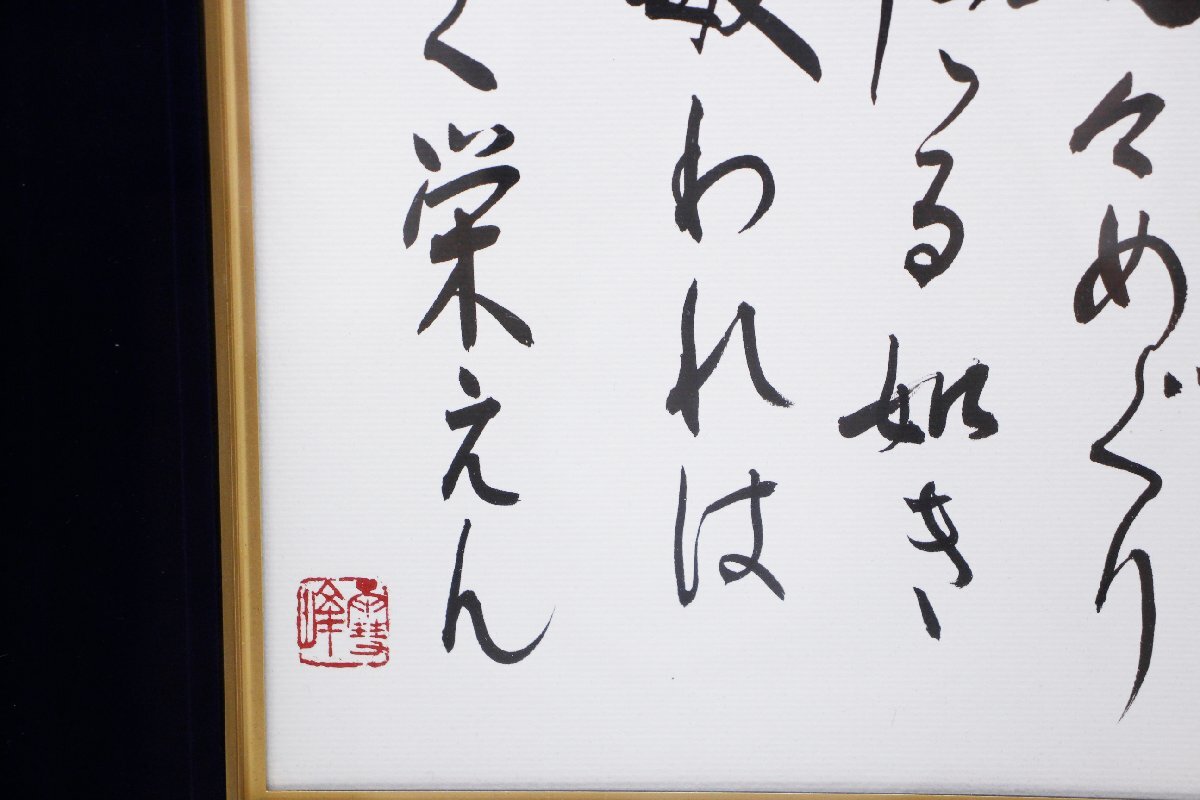 々めぐり
る如き
敏われは
く栄えん
雪峰